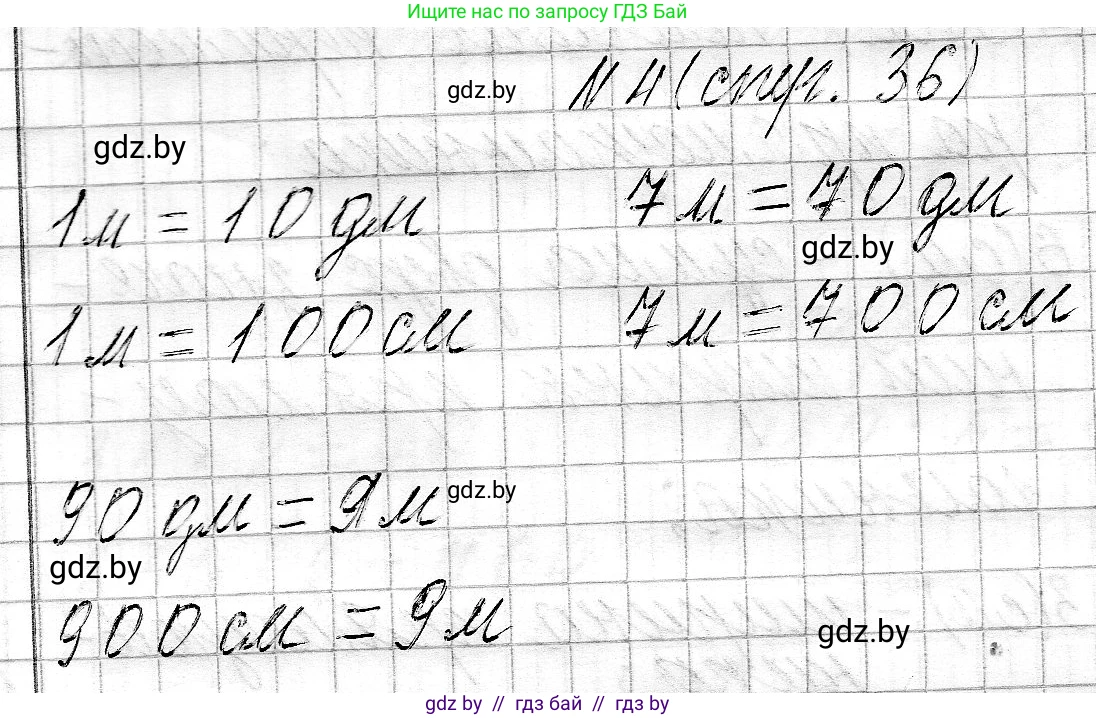 Ищите нас по запросу ГДЗ Бай
gdz.by
№ 4 (стр. 36)
gdz.by
1 м = 10 дм
7 м = 70 дм
gdz.by
1 м = 100 см
7 м = 700 см
90 дм = 9 м
gdz.by
gdz.by
900 см = 9 м
gdz.by
gdz by // гдз бай // гдз by